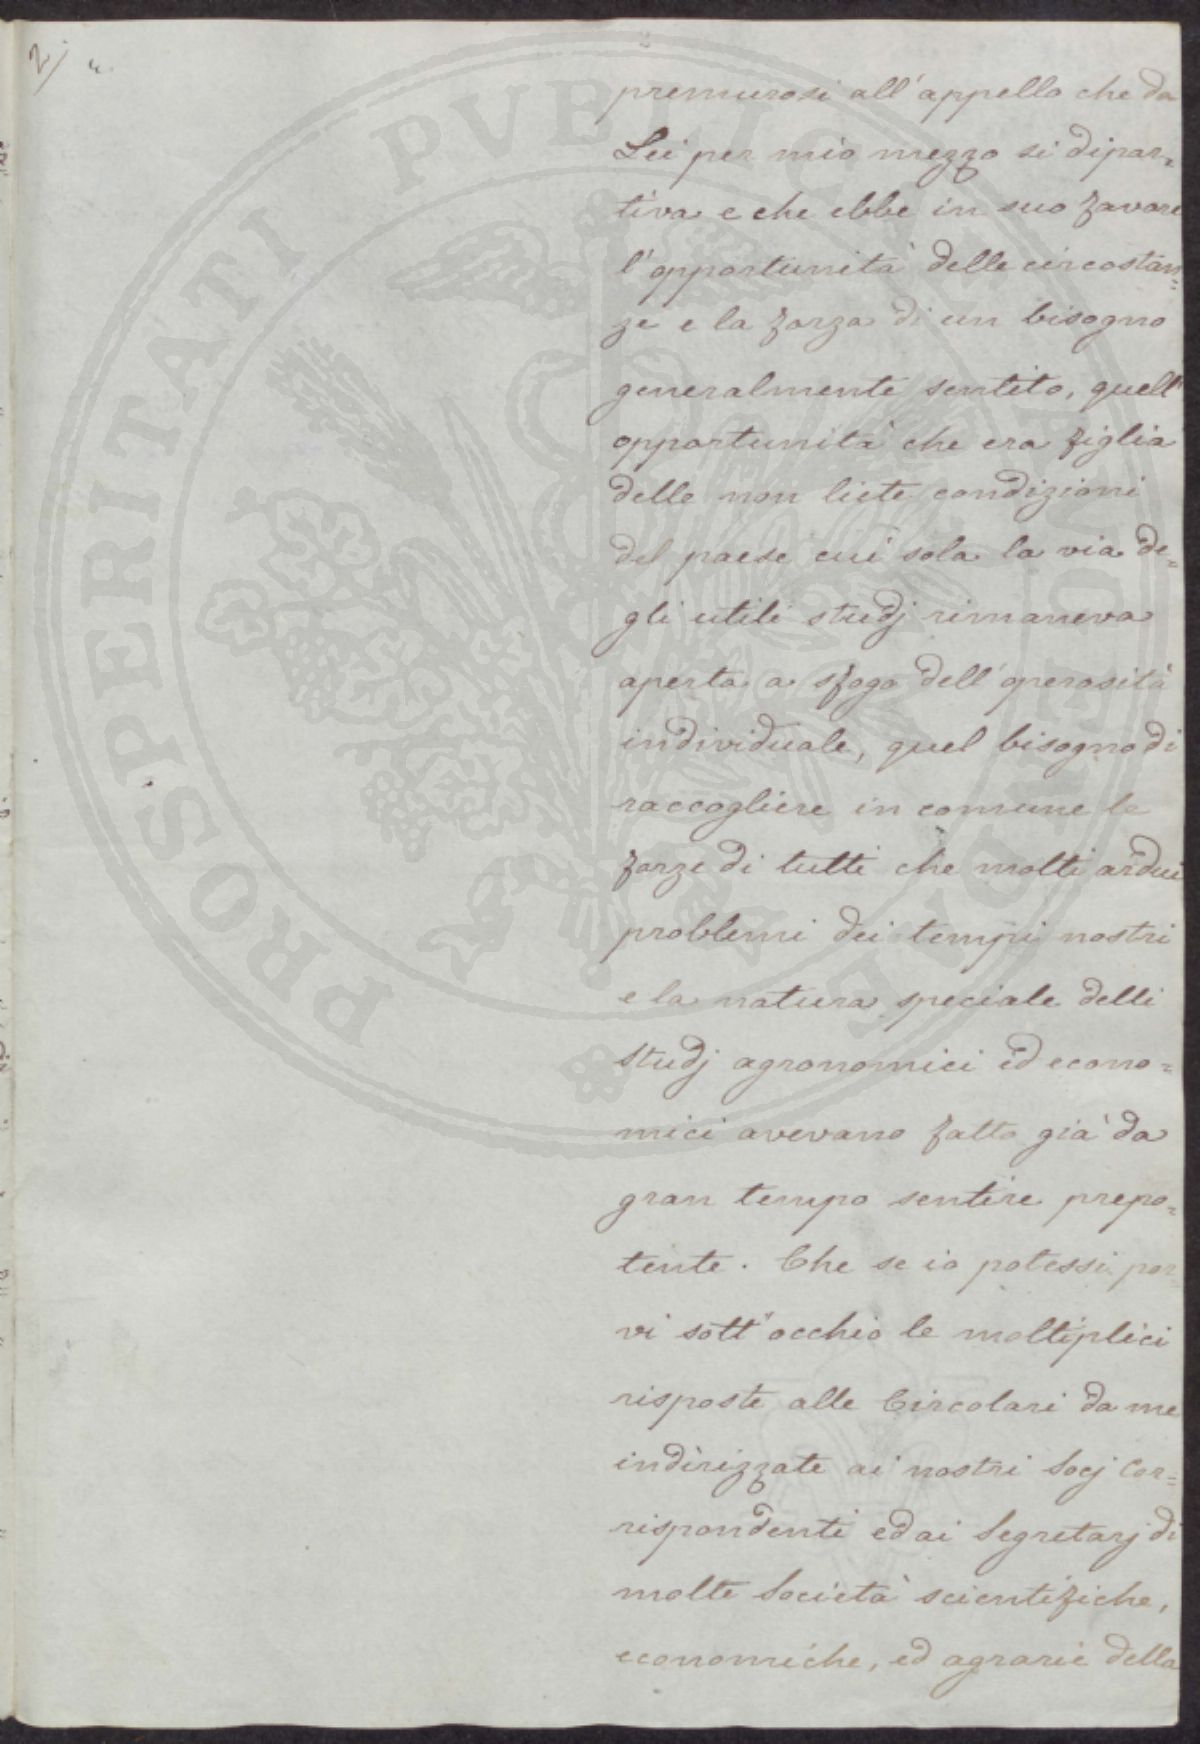 2/
premurosi all'appello che da
Lei per mio mezzo si dipar=
tiva e che ebbe in suo favore
l'opportunità delle circostan=
ze e la forza di un bisogno
generalmente sentito, quell'
opportunità che era figlia
delle non liete condizioni
del paese cui sola la via de=
gli utili studj rimaneva
aperta a sfogo dell'operosità
individuale, quel bisogno di
raccogliere in comune le
forze di tutti che molti ardui
problemi dei tempi nostri
e la natura speciale delli
studj agronomici ed econo=
mici avevano fatto già da
gran tempo sentire prepo=
tente. Che se io potessi por=
vi sott'occhio le moltiplici
risposte alle Circolari da me
indirizzate ai nostri Socj Cor=
rispondenti ed ai Segretarj di
molte Società scientifiche,
economiche, ed agrarie della
PROSPERITATI PVBLICAE AVGENDAE